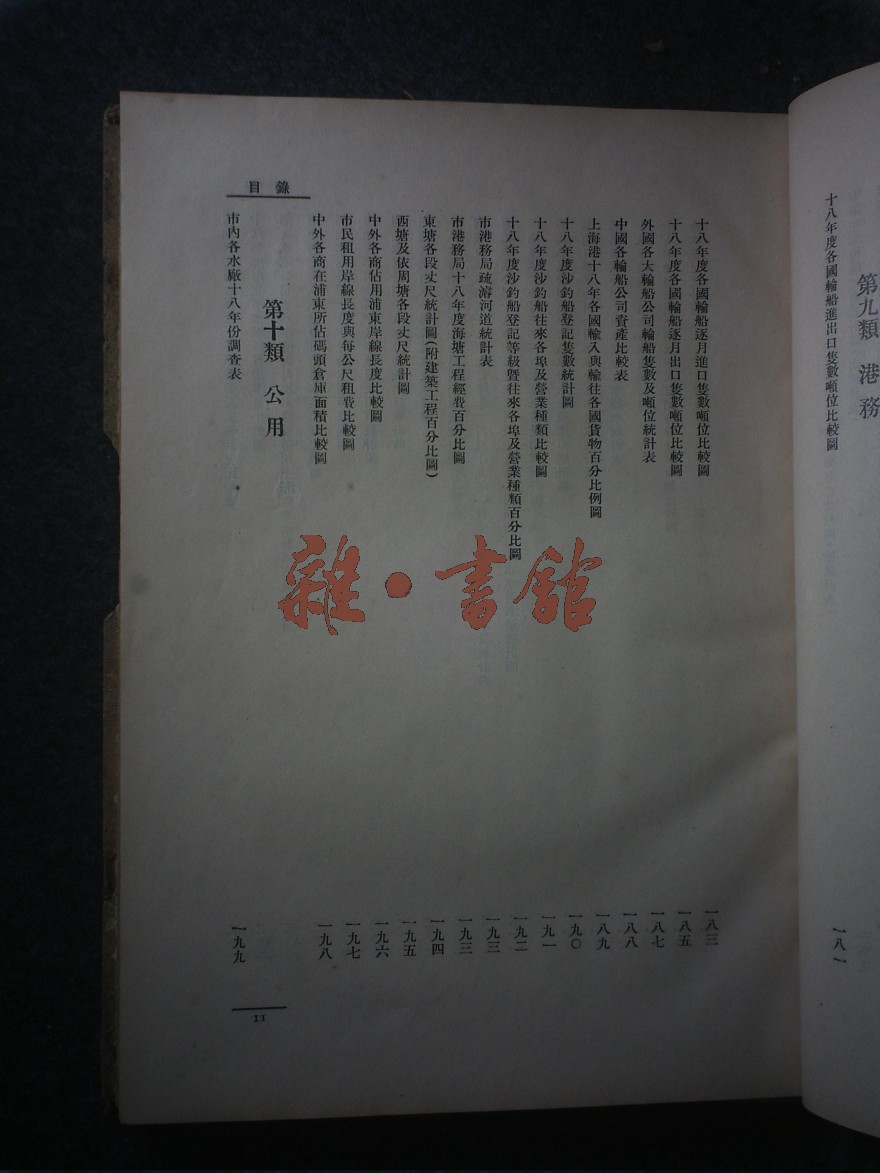 第九類 港務
十八年度各國輪船進出口隻數噸位比較圖 一八一
十八年度各國輪船逐月進口隻數噸位比較圖 一八三
十八年度各國輪船逐月出口隻數噸位比較圖 一八五
外國各大輪船公司輪船隻數及噸位統計表 一八七
中國各輪船公司資產比較表 一八八
上海港十八年各國輸入與輸往各國貨物百分比例圖 一八九
十八年度沙釣船登記隻數統計圖 一九〇
十八年度沙釣船往來各埠及營業種類比較圖 一九一
十八年度沙釣船登記等級暨往來各埠及營業種類百分比圖 一九二
市港務局疏濬河道統計表 一九三
市港務局十八年度海塘工程經費百分比圖 一九三
東塘各段丈尺統計圖(附建築工程百分比圖) 一九四
西塘及依周塘各段丈尺統計圖 一九五
中外各商佔用浦東岸線長度比較圖 一九六
市民租用岸線長度與每公尺租費比較圖 一九七
中外各商在浦東所佔碼頭倉庫面積比較圖 一九八
第十類 公用
市內各水廠十八年份調查表 一九九
目錄
11
雜·書館